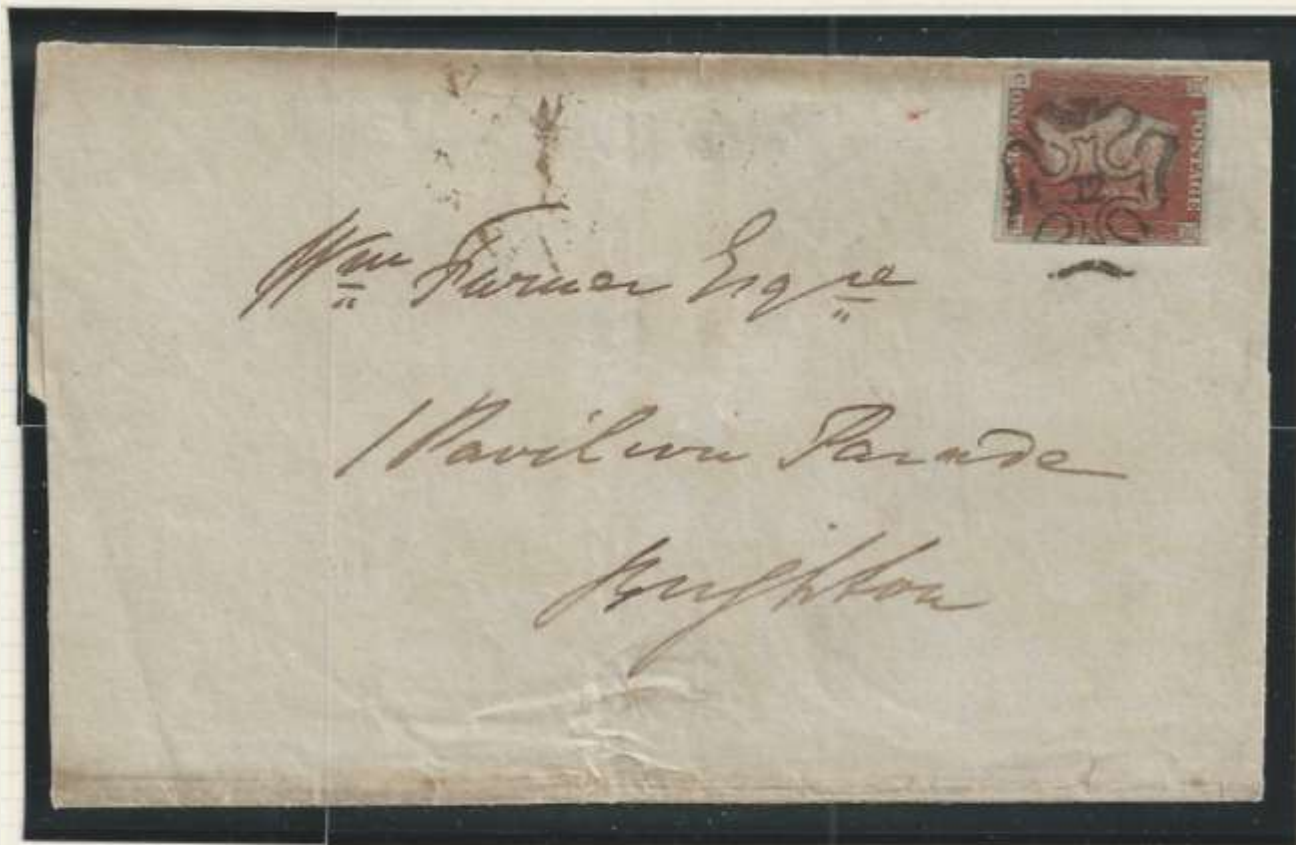 POSTAGE
ONE
12
Wm Furner Esqre
1 Pavilion Parade
Brighton